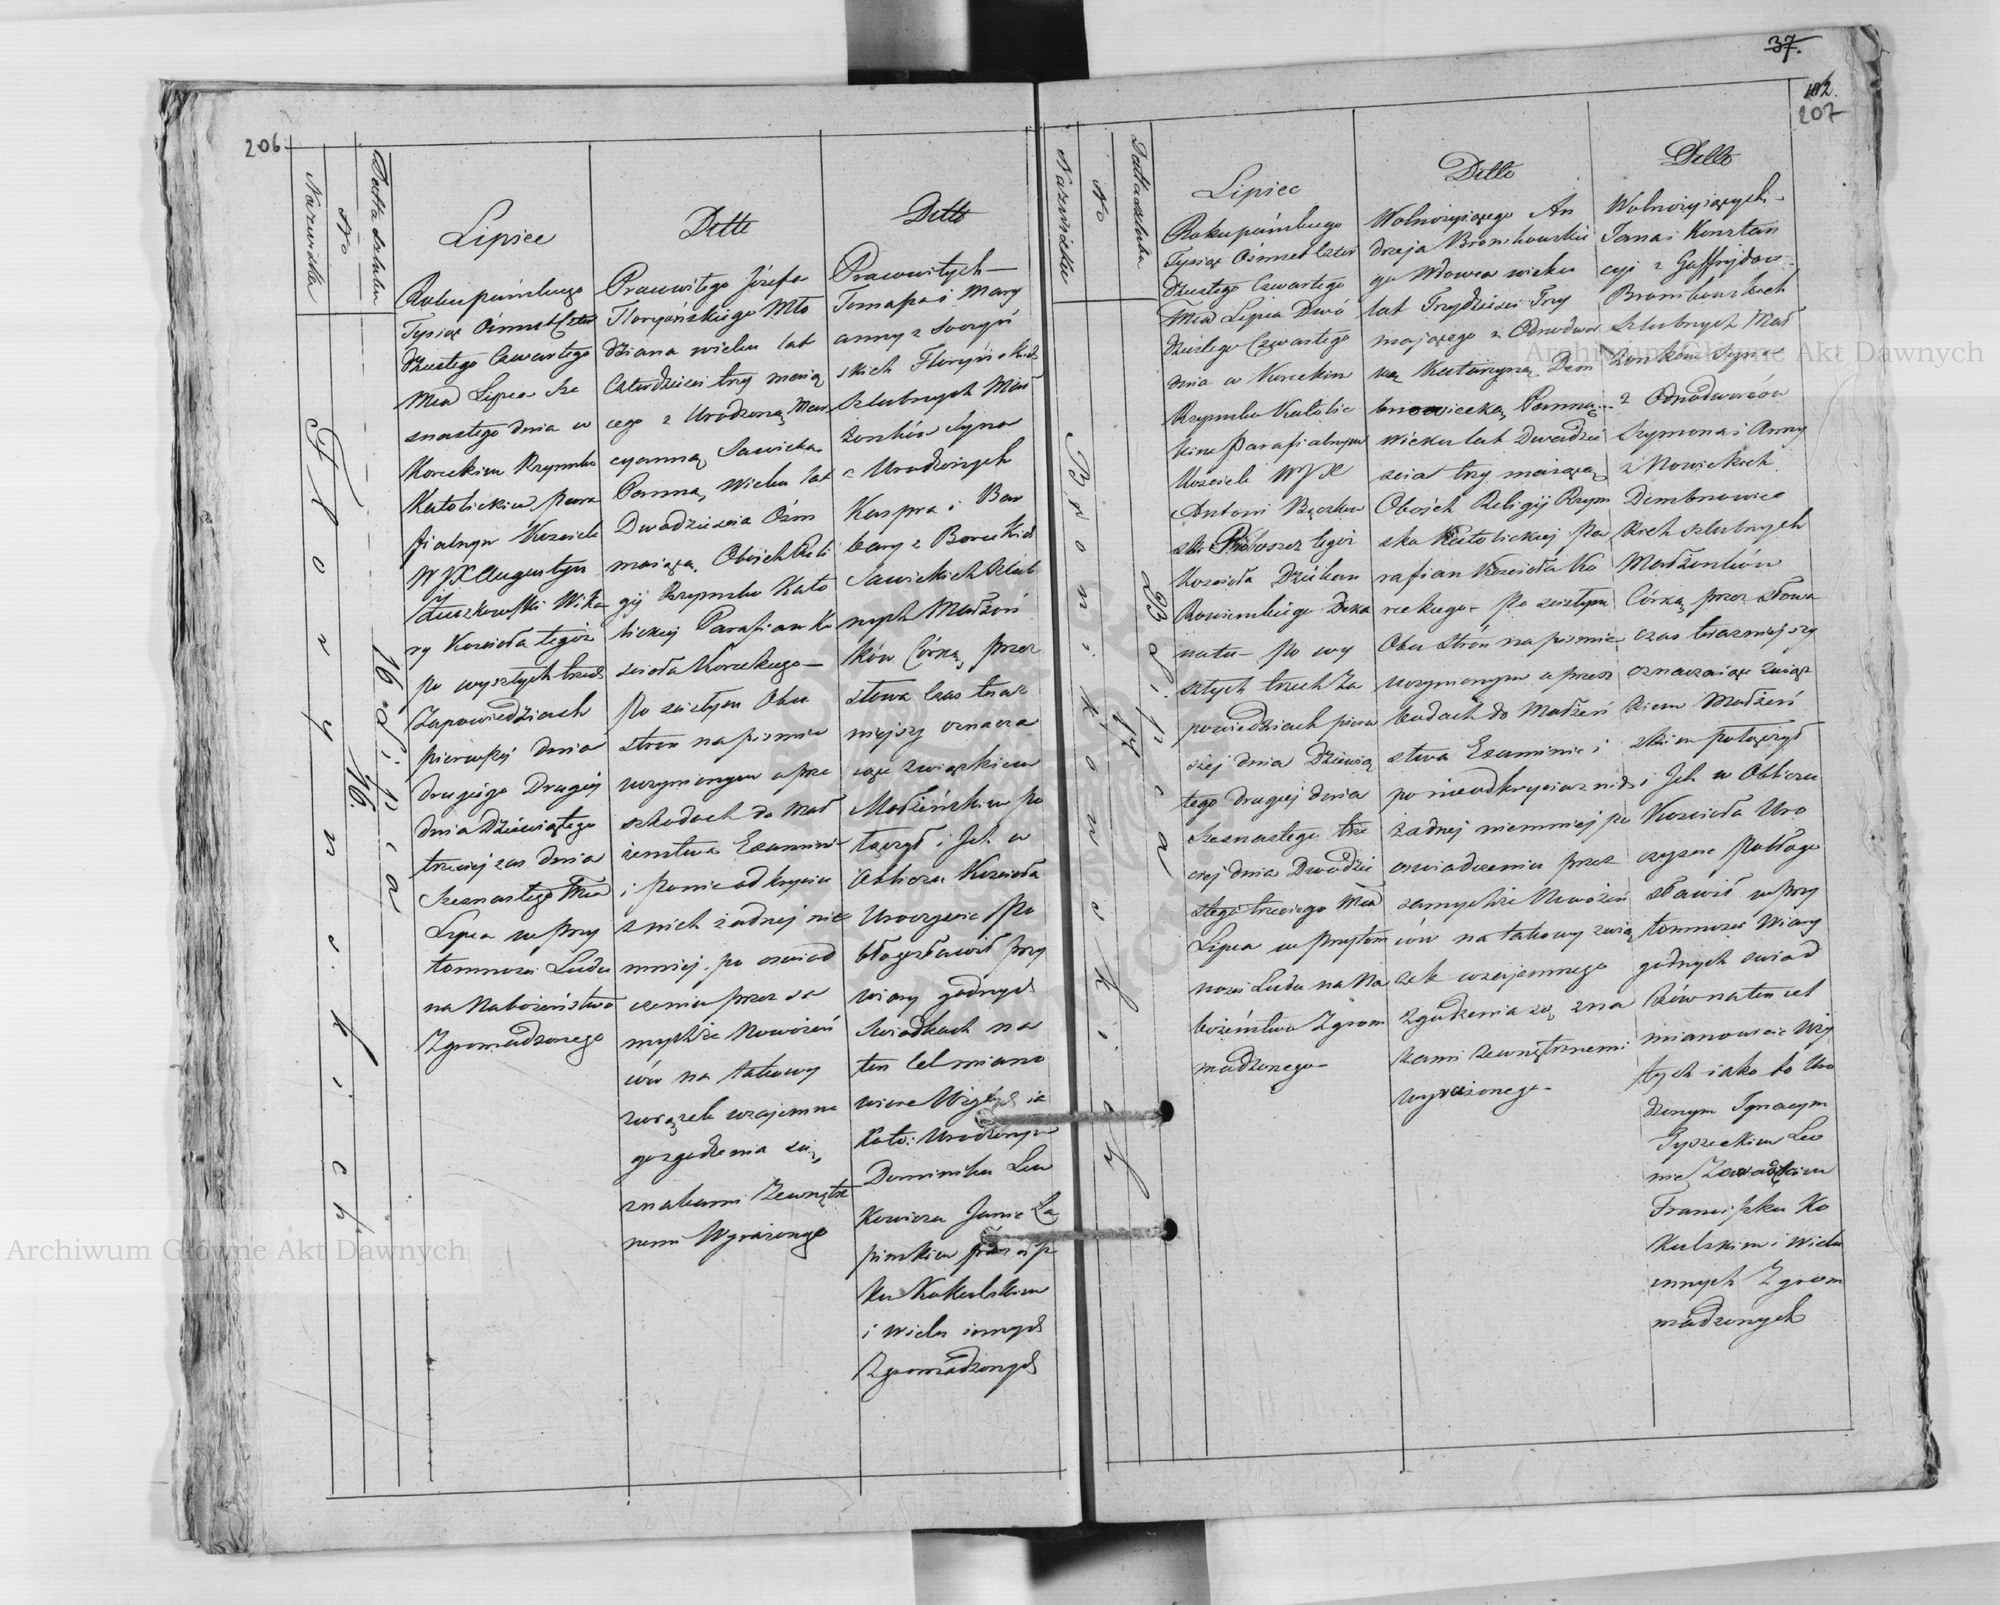 206
Datta szlubu
No
Nazwiska
16 Lipca
16.
Florynskich
Lipiec
Roku pańskiego
Tysiąc Ośmset Czter
dziestego Czwartego
Mca Lipca Sze
snastego dnia w
Koreckim Rzymsko
Katolickim para
fialnym Kosciele
W JX Augustyn
Wika
ry Kościoła tegóż
po wyszłych trzech
Zapowiedziach
pierwszej dnia
drugiego Drugiej
dnia Dziewiątego
trzeciej zas dnia
Szesnastego Mca
Lipca w przy
tomnosci Ludu
na Nabożeństwo
Zgromadzonego
Dette
Prawitego Józefa
Floryańskiego Mło
dziana wieku lat
Czterdzieści trzy mają
cego z Urodzoną Mar
cyanną Sawicka
Panną, Wieku lat
Dwadziescia Ośm
mającą, Obojch Reli
gij Rzymsko Kato
lickiej Parafian Ko
scioła Koreckiego—
Po scisłym Obu
stron na pismie
uczynionym o prze
szkodach do Mał
żeństwa Examinie
i po nie odkryciu
z nich żadnej nie
mniej, po oswiad
czeniu przez sa
mychże Nowożeń
ców na takowy
związek wzajemne
go zgodzenia się,
znakami Zewnętrz
nemi Wyrażonego
Detto
Prawowitych—
Tomasza i Mary
anny z
skich Floryńskich
Szlubnych Mał
żonków Syna
z Urodzonych
Kaspra i Bar
bary z Boreckich
Sawickich Szlub
nych Małżon
ków Córką, przez
słowa Czas teraz
niejszy oznacza
jące związkiem
Małżeńskim po
łączył i Jch w
Obliczu Kościoła
Uroczyscie Po
błogosławił przy
wiary godnych
Swiadkach na
ten Cel miano
wicie Wzjętych ia
Koto: Urodzonym
Dominiku Lew
Kowicza Janie Ła
pinskim
ku Kokulskim
i wielu innych
Zgromadzonych
37.
102.
207
Datta szlubu
No
Nazwiska
23 Lipca
17
Bronikowskich
Lipiec
Roku pańskiego
Tysiąc Ośmset Czter
dziestego Czwartego
Mca Lipca Dwó
dziestego Czwartego
dnia w Koreckim
Rzymsko Katolic
kim Parafialnym
Kosciele W JX
Antoni
ski Proboszcz tegóż
Kościoła Dziekan
Rowienskiego Deka
natu— Po wy
szłych trzech Za
powiedziach pierw
szej dnia Dziewią
tego drugiej dnia
Szesnastego trze
ciej dnia Dwadzie
stego trzeciego Mca
Lipca w przytom
nosci Ludu na Na
bożeństwo Zgrom
madzonego—
Detto
Wolnożyiącego An
drzeja Bronikowskie
go Wdowca wieku
lat Trzydziesci Trzy
mającego z Odnodwor
ką Katarzyną Dem
bnowiecką Panną
wieku lat Dwadzie
scia trzy mającą
Obojch Religij Rzym
sko Katolickiej Pa
rafian Kościoła Ko
reckiego— Po scisłym
Obu stron na pismie
uczynionym o przesz
kodach do Małżeń
stwa Examinie i
po nieodkryciu z nich
żadnej niemniej po
oswiadczeniu przez
samychże Nowożeń
ców na takowy zwią
zek wzajemnego
Zgodzenia się zna
kami Zewnętrznemi
wyrażonego—
Detto
Wolnożyiących—
Jana i Konstan
cyi z
Bronikowskich
Szlubnych Mał
żonków Syna
z Odnodworców
Szymona i Anny
z Nowickich
Dembnowiec
kich szlubnych
Małżonków
Córką, przez słowa
czas teraźniejszy
oznaczające związ
kiem Małżeń
skim połączył
i Jch w Obliczu
Kościoła Uro
czyscie Pobłogo
sławił w przy
tomnosci Wiary
godnych swiad
ków na ten cel
mianowicie Wzję
tych iako to Uro
dzonym Ignacym
Leo
nie Zawadzkim
Franciszku Ko
kulskim i wielu
innych Zgrom
madzonych
Archiwum Główne Akt Dawnych
Archiwum Główne Akt Dawnych